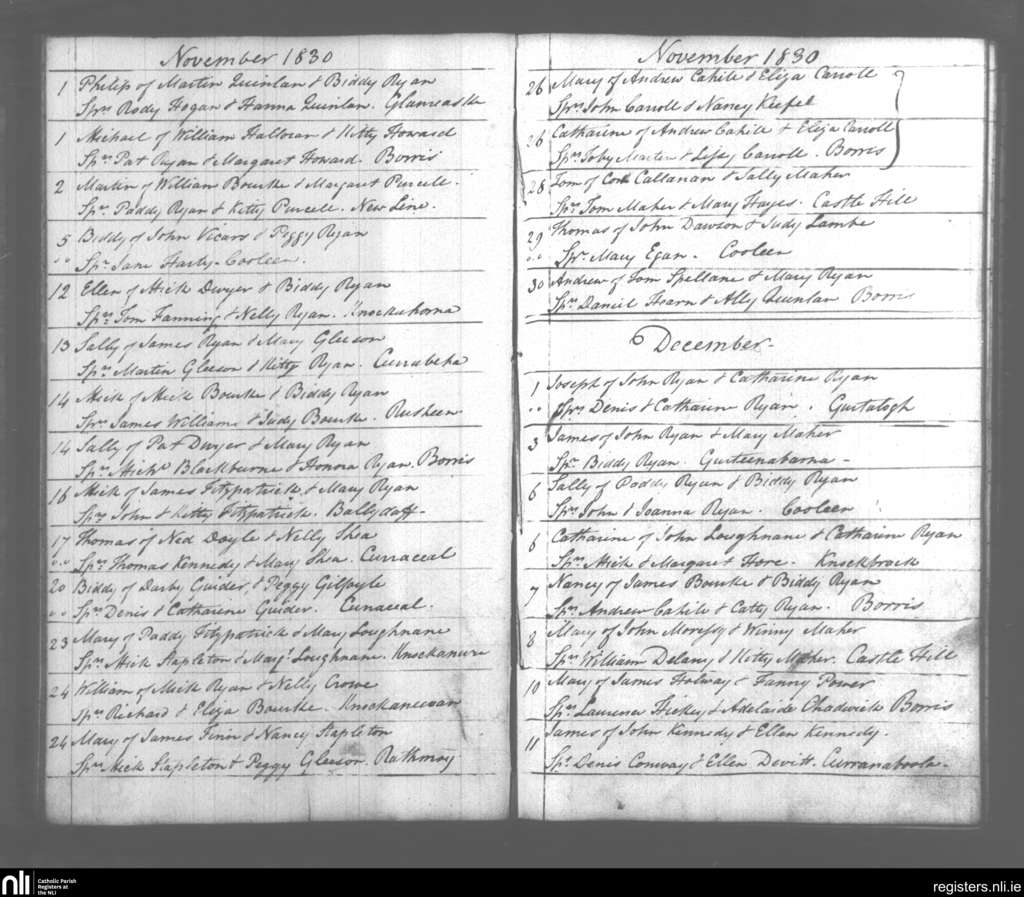 November 1830
1 Philip of Martin Quinlan & Biddy Ryan
Sprs Rody Hogan & Hanna Quinlan.
1 Michael of William Halloran & Kitty Howard
Sprs Pat Ryan & Margaret Howard. Borris
2 Martin of William Bourke & Margaret Purcell.
Sprs Paddy Ryan & Kitty Purcell. New Line.
5 Biddy of John Vicars & Peggy Ryan
Spr Jane Harty. Cooleen.
12 Ellen of Mick Dwyer & Biddy Ryan
Sprs Tom Fanning & Nelly Ryan. Knockahorna
13 Sally of James Ryan & Mary Gleeson
Sprs Martin Gleeson & Kitty Ryan. Currabeha
14 Mick of Mick Bourke & Biddy Ryan
Sprs James Williams & Judy Bourke. Rusheen
14 Sally of Pat Dwyer & Mary Ryan
Sprs Mick Blackburne & Honora Ryan. Borris
16 Mick of James Fitzpatrick & Mary Ryan
Sprs John & Kitty Fitzpatrick. Ballyduff-
17 Thomas of Ned Doyle & Nelly Shea
Sprs Thomas Kennedy & Mary Shea. Curraceal
20 Biddy of Darby Guider, & Peggy Gilfoyle
Sprs Denis & Catharine Guider. Curaceal.
23 Mary of Paddy Fitzpatrick & Mary Loughnane
Sprs Mick Stapleton & Margt Loughnane. Knockanure
24 William of Mick Ryan & Nelly Crowe
Sprs Richard & Eliza Bourke. Knockaneevan
24 Mary of James Finn & Nancy Stapleton
Sprs Mick Stapleton & Peggy Gleeson. Rathmoy
November 1830
26 Mary of Andrew Cahill & Eliza Carroll
Sprs John Carroll & Nancy Keefe
26 Catharine of Andrew Cahill & Eliza Carroll
Sprs Toby Marten & Carroll. Borris
28 Tom of Callanan & Sally Maher
Sprs Tom Maher & Mary Hayes. Castle Hill
29 Thomas of John Dawson & Judy Lambe
Spr Mary Egan. Cooleen
30 Andrew of Tom Spellane & Mary Ryan
Sprs Daniel Hearn & Ally Quinlan Borris
December.
1 Joseph of John Ryan & Catharine Ryan
Sprs Denis & Catharine Ryan. Gurtalogh
3 James of John Ryan & Mary Maher
Spr Biddy Ryan. Gurteenabarna -
6 Sally of Paddy Ryan & Biddy Ryan
Sprs John & Joanna Ryan. Cooleen
6 Catharine of John Loughnane & Catharine Ryan
Sprs Mick & Margaret Hore. Knockbrack
7 Nancy of James Bourke & Biddy Ryan
Sprs Andrew Cahill & Catty Ryan. Borris
8 Mary of John Morrissy & Winny Maher
Sprs William Delany & Kitty Maher. Castle Hill
10 Mary of James Holway & Fanny Power
Sprs Laurence Hickey & Adelaide Chadwick Borris
11 James of John Kennedy & Ellen Kennedy.
Sprs Denis Conway & Ellen Devitt. Curranaboola-
nli
Catholic Parish
Registers at
the NLI
registers.nli.ie